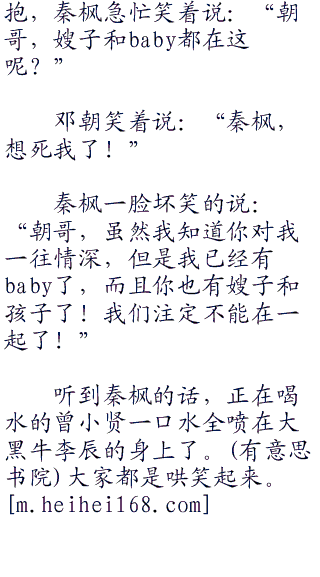 抱，秦枫急忙笑着说：“朝
哥，嫂子和baby都在这
呢？”
邓朝笑着说：“秦枫，
想死我了！”
秦枫一脸坏笑的说：
“朝哥，虽然我知道你对我
一往情深，但是我已经有
baby了，而且你也有嫂子和
孩子了！我们注定不能在一
起了！”
听到秦枫的话，正在喝
水的曾小贤一口水全喷在大
黑牛李辰的身上了。(有意思
书院)大家都是哄笑起来。
[m.heihei168.com]